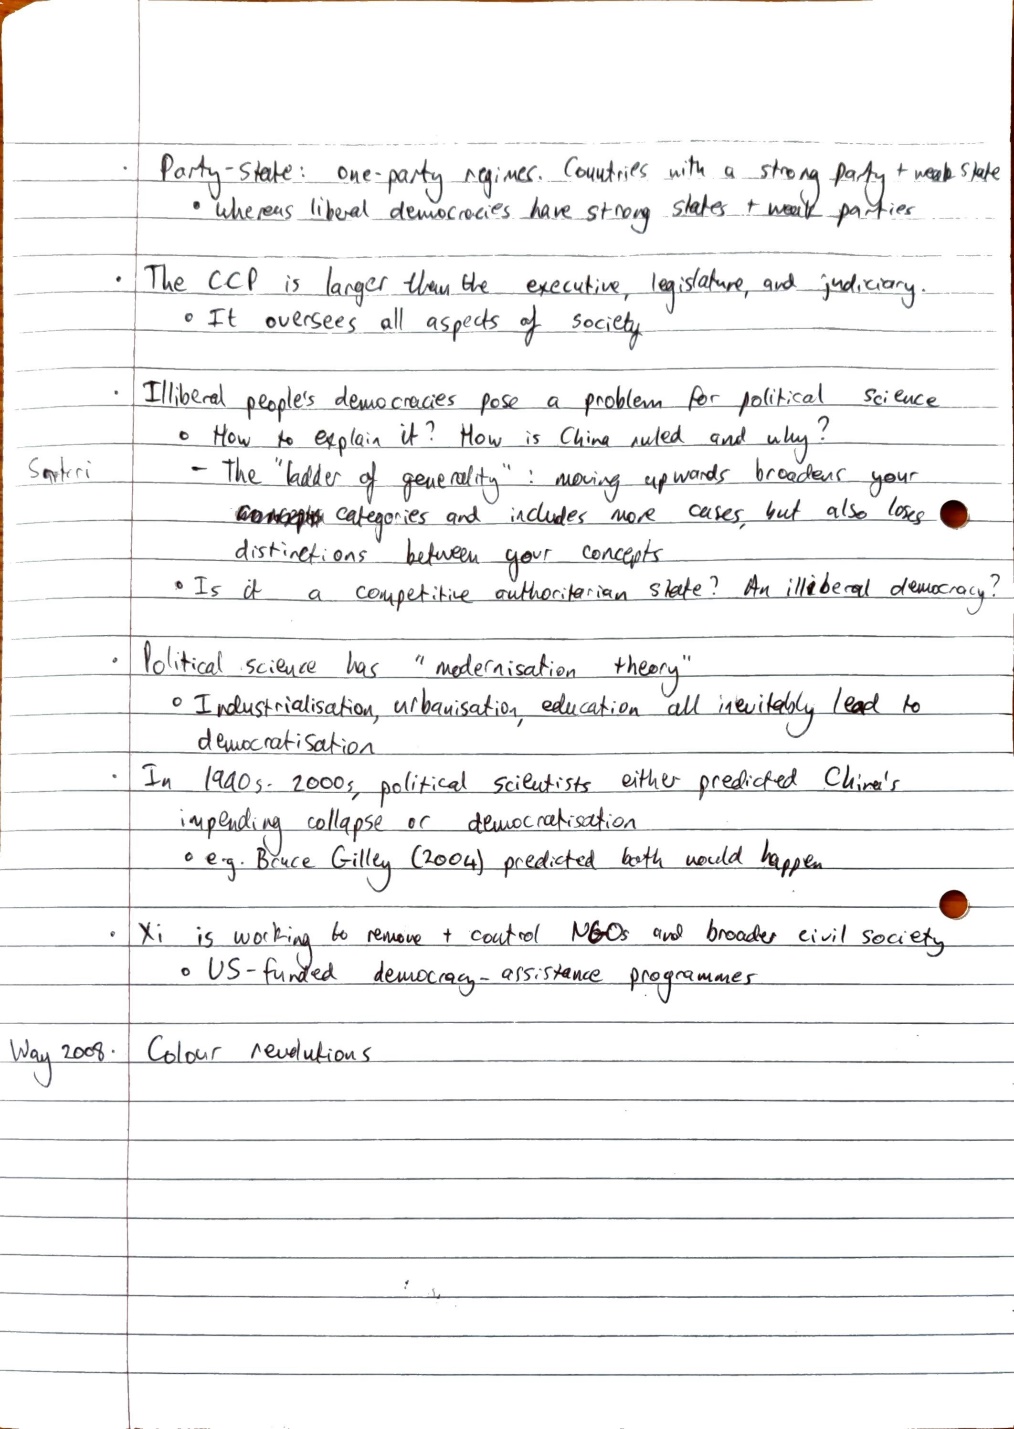 · Party-State: one-party regimes. Countries with a strong party + weak state
• Whereas liberal democracies have strong states + weak parties
· The CCP is larger than the executive, legislature, and judiciary.
◦ It oversees all aspects of society
· Illiberal people's democracies pose a problem for political science
◦ How to explain it? How is China ruled and why?
Sartori - The "ladder of generality": moving upwards broadens your
categories and includes more cases, but also loses
distinctions between your concepts
• Is it a competitive authoritarian state? An illiberal democracy?
· Political science has "modernisation theory"
◦ Industrialisation, urbanisation, education all inevitably lead to
democratisation
· In 1990s-2000s, political scientists either predicted China's
impending collapse or democratisation
◦ e.g. Bruce Gilley (2004) predicted both would happen
· Xi is working to remove + control NGOs and broader civil society
◦ US-funded democracy-assistance programmes
Way 2008. Colour revolutions